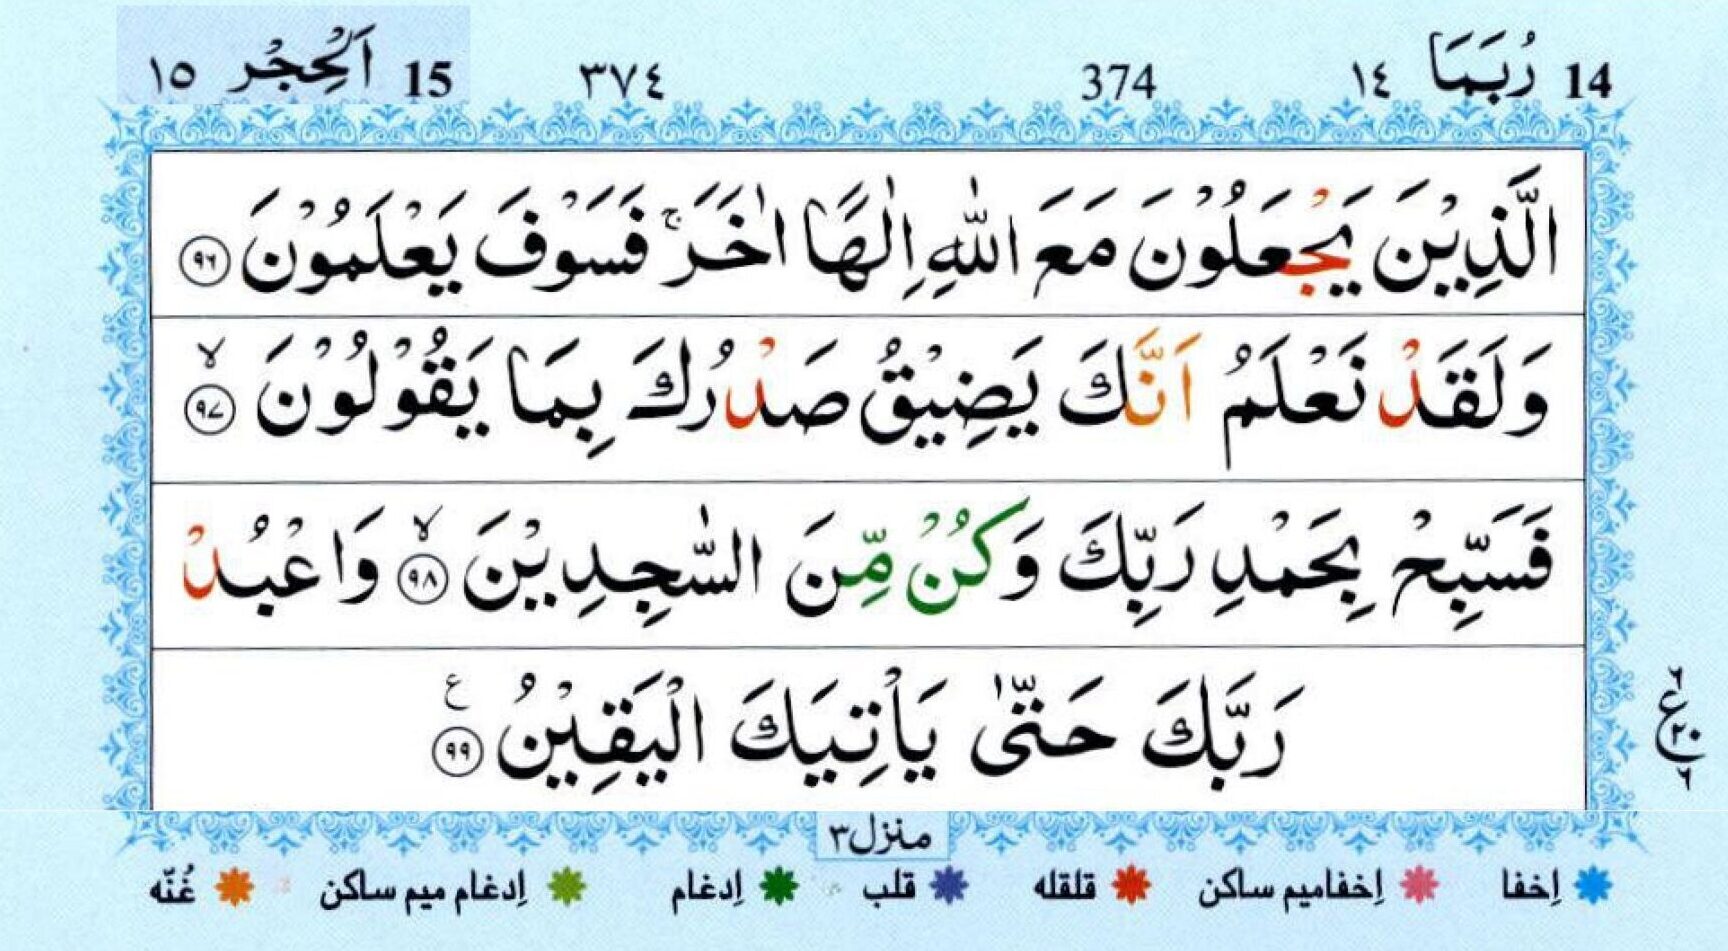 14 رُبَمَا ١٤ 374 ٣٧٤ 15 اَلْحِجْر ١٥
الَّذِيْنَ يَجْعَلُوْنَ مَعَ اللّٰهِ اِلٰهًا اٰخَرَ ۚ فَسَوْفَ يَعْلَمُوْنَ ٩٦
وَلَقَدْ نَعْلَمُ اَنَّكَ يَضِيْقُ صَدْرُكَ بِمَا يَقُوْلُوْنَ ۙ ٩٧
فَسَبِّحْ بِحَمْدِ رَبِّكَ وَكُنْ مِّنَ السّٰجِدِيْنَ ۙ ٩٨ وَاعْبُدْ
رَبَّكَ حَتّٰى يَاْتِيَكَ الْيَقِيْنُ ٩٩ ع
٦ ع ٢٠ ٦
منزل٣
اِخفا اِخفامیم ساکن قلقله قلب اِدغام اِدغام میم ساکن غُنّه